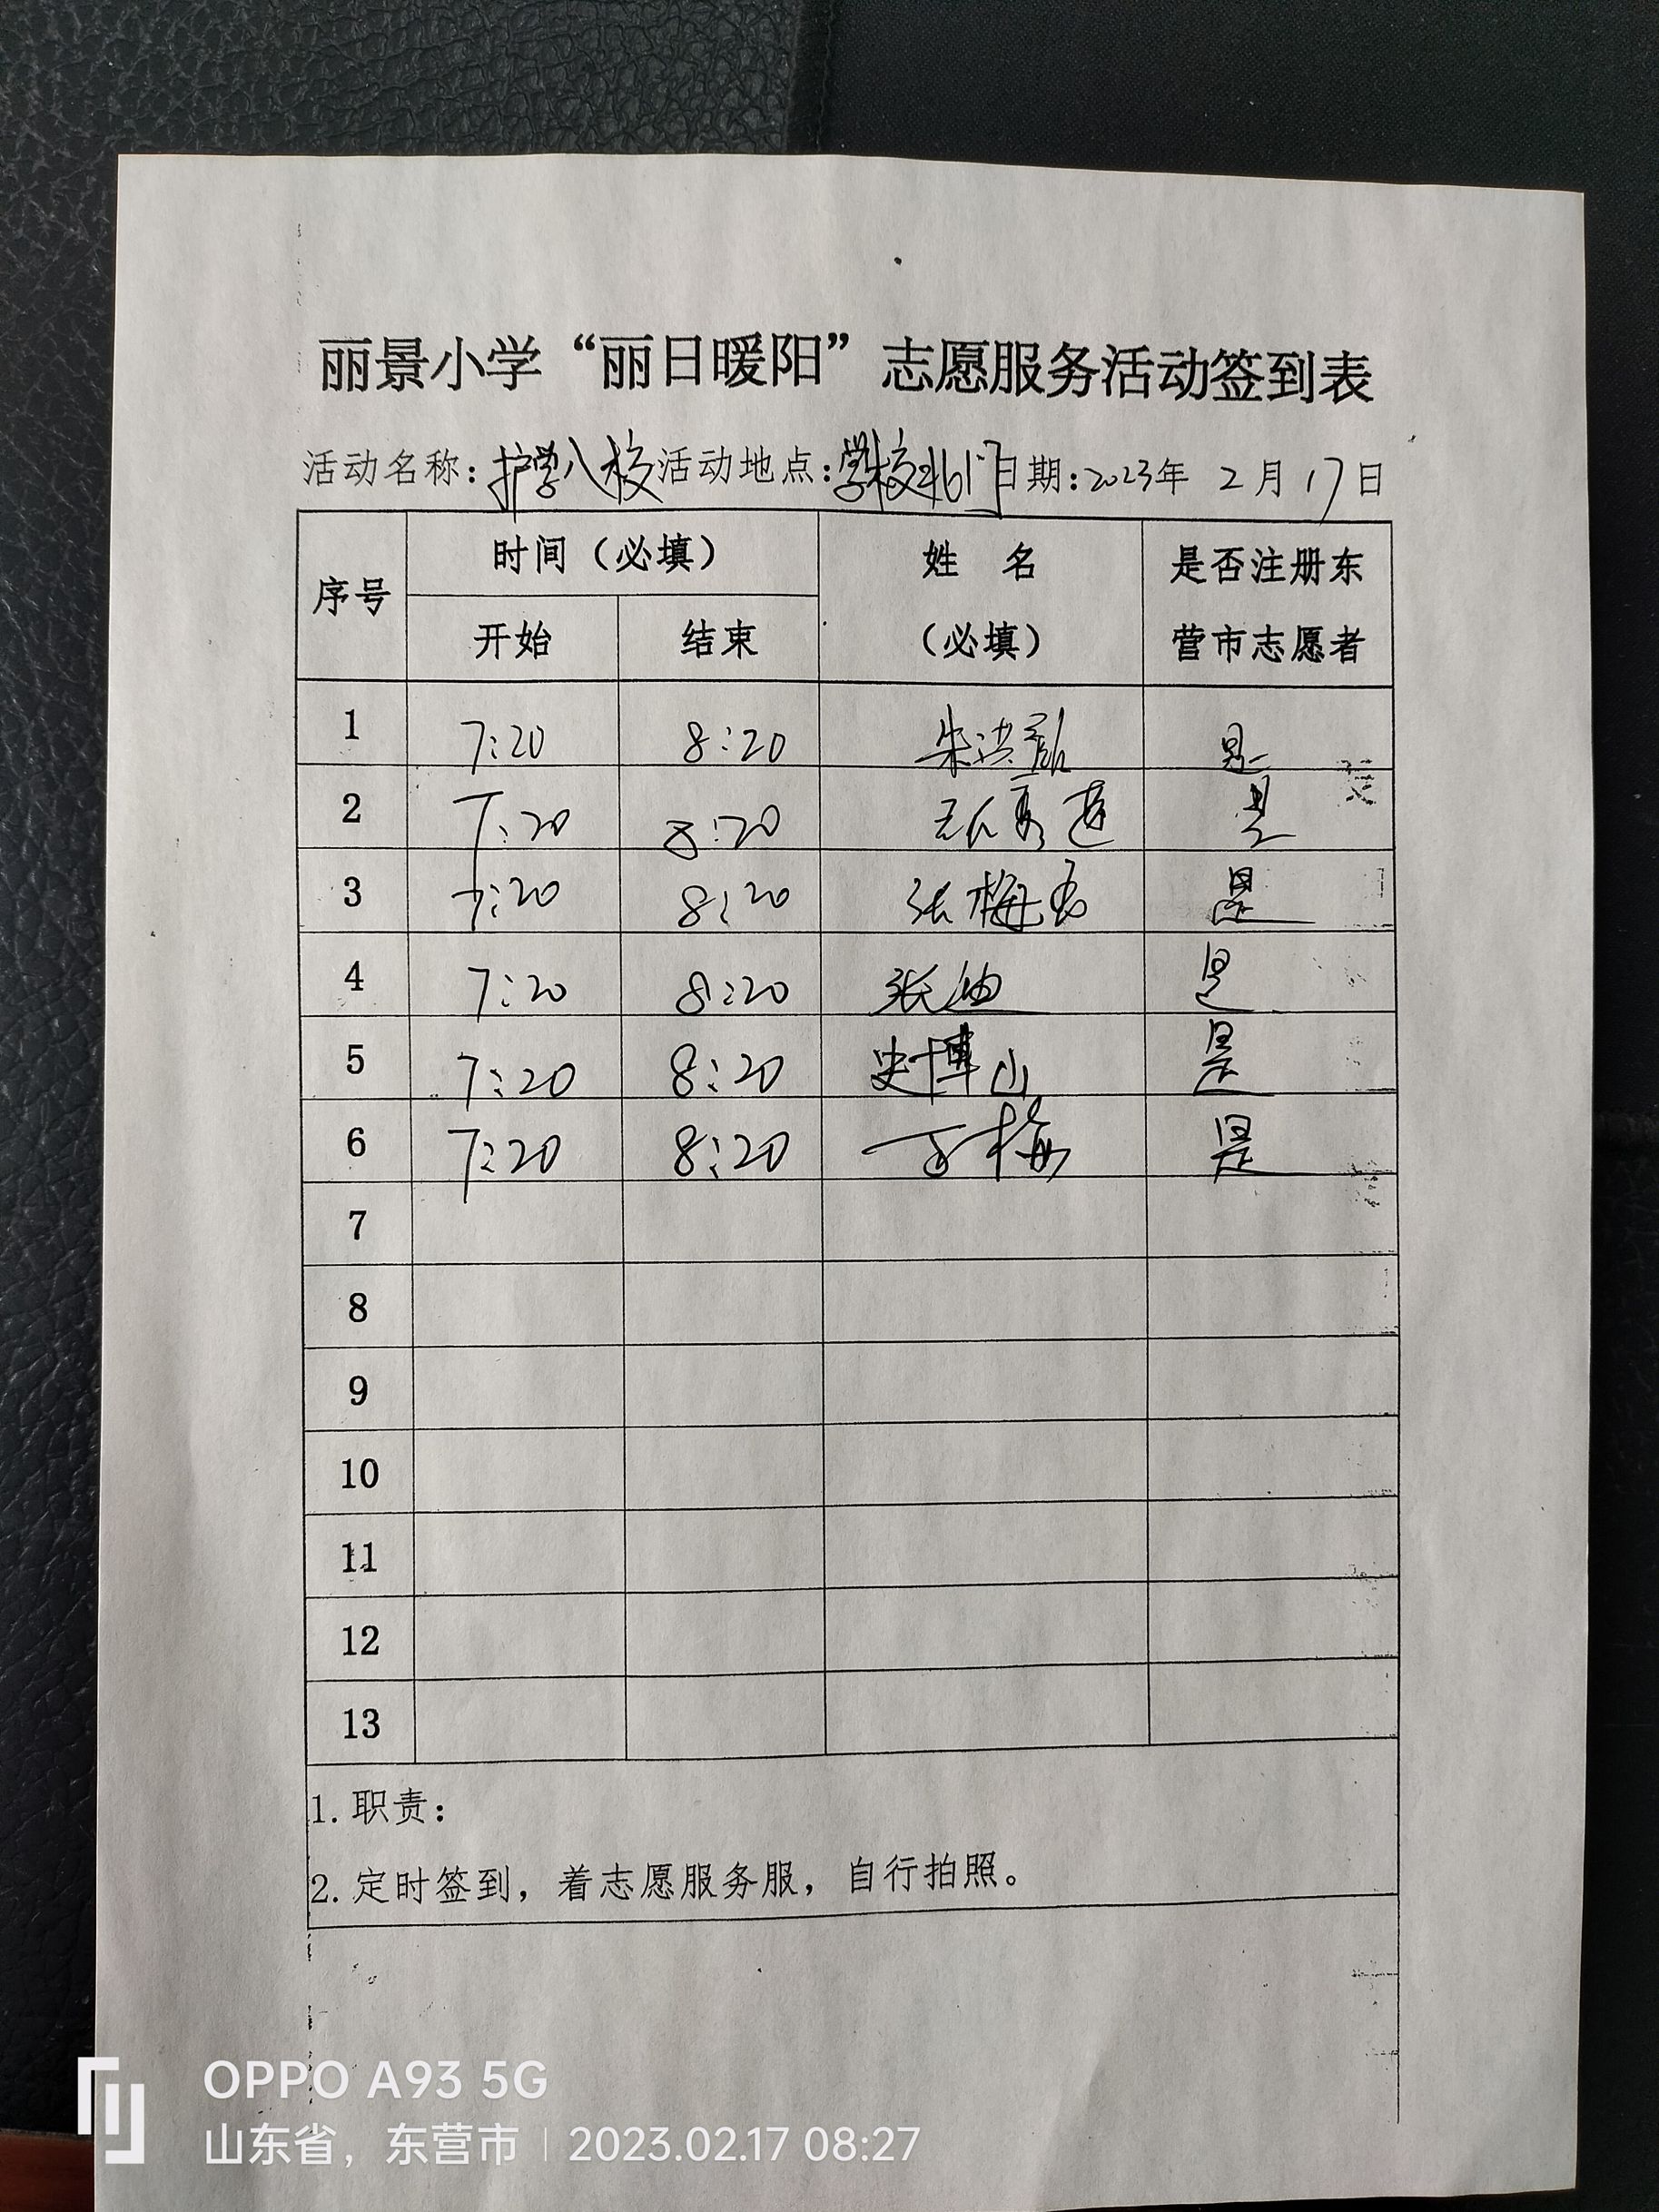 丽景小学“丽日暖阳”志愿服务活动签到表
活动名称：护学入校 活动地点：学校北门 日期：2023年 2 月 17 日
序号 时间（必填） 姓 名（必填） 是否注册东营市志愿者
开始 结束
1 7:20 8:20 朱洪 是
2 7:20 8:20 是
3 7:20 8:20 张梅 是
4 7:20 8:20 张迪 是
5 7:20 8:20 史博山 是
6 7:20 8:20 梅 是
7
8
9
10
11
12
13
1.职责：
2.定时签到，着志愿服务服，自行拍照。
OPPO A93 5G
山东省，东营市 | 2023.02.17 08:27